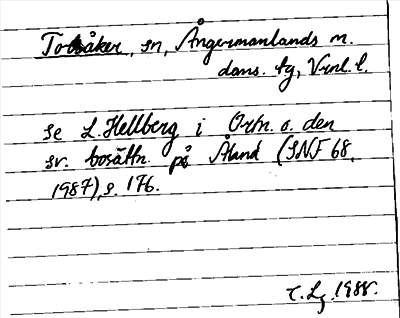 Torsåker, sn, Ångermanlands m.
doms. tg, Vrnl. l.
se L. Hellberg i Ortn. o. den
sv. bosättn. på Åland (SNF 68,
1987), s. 176.
1988.